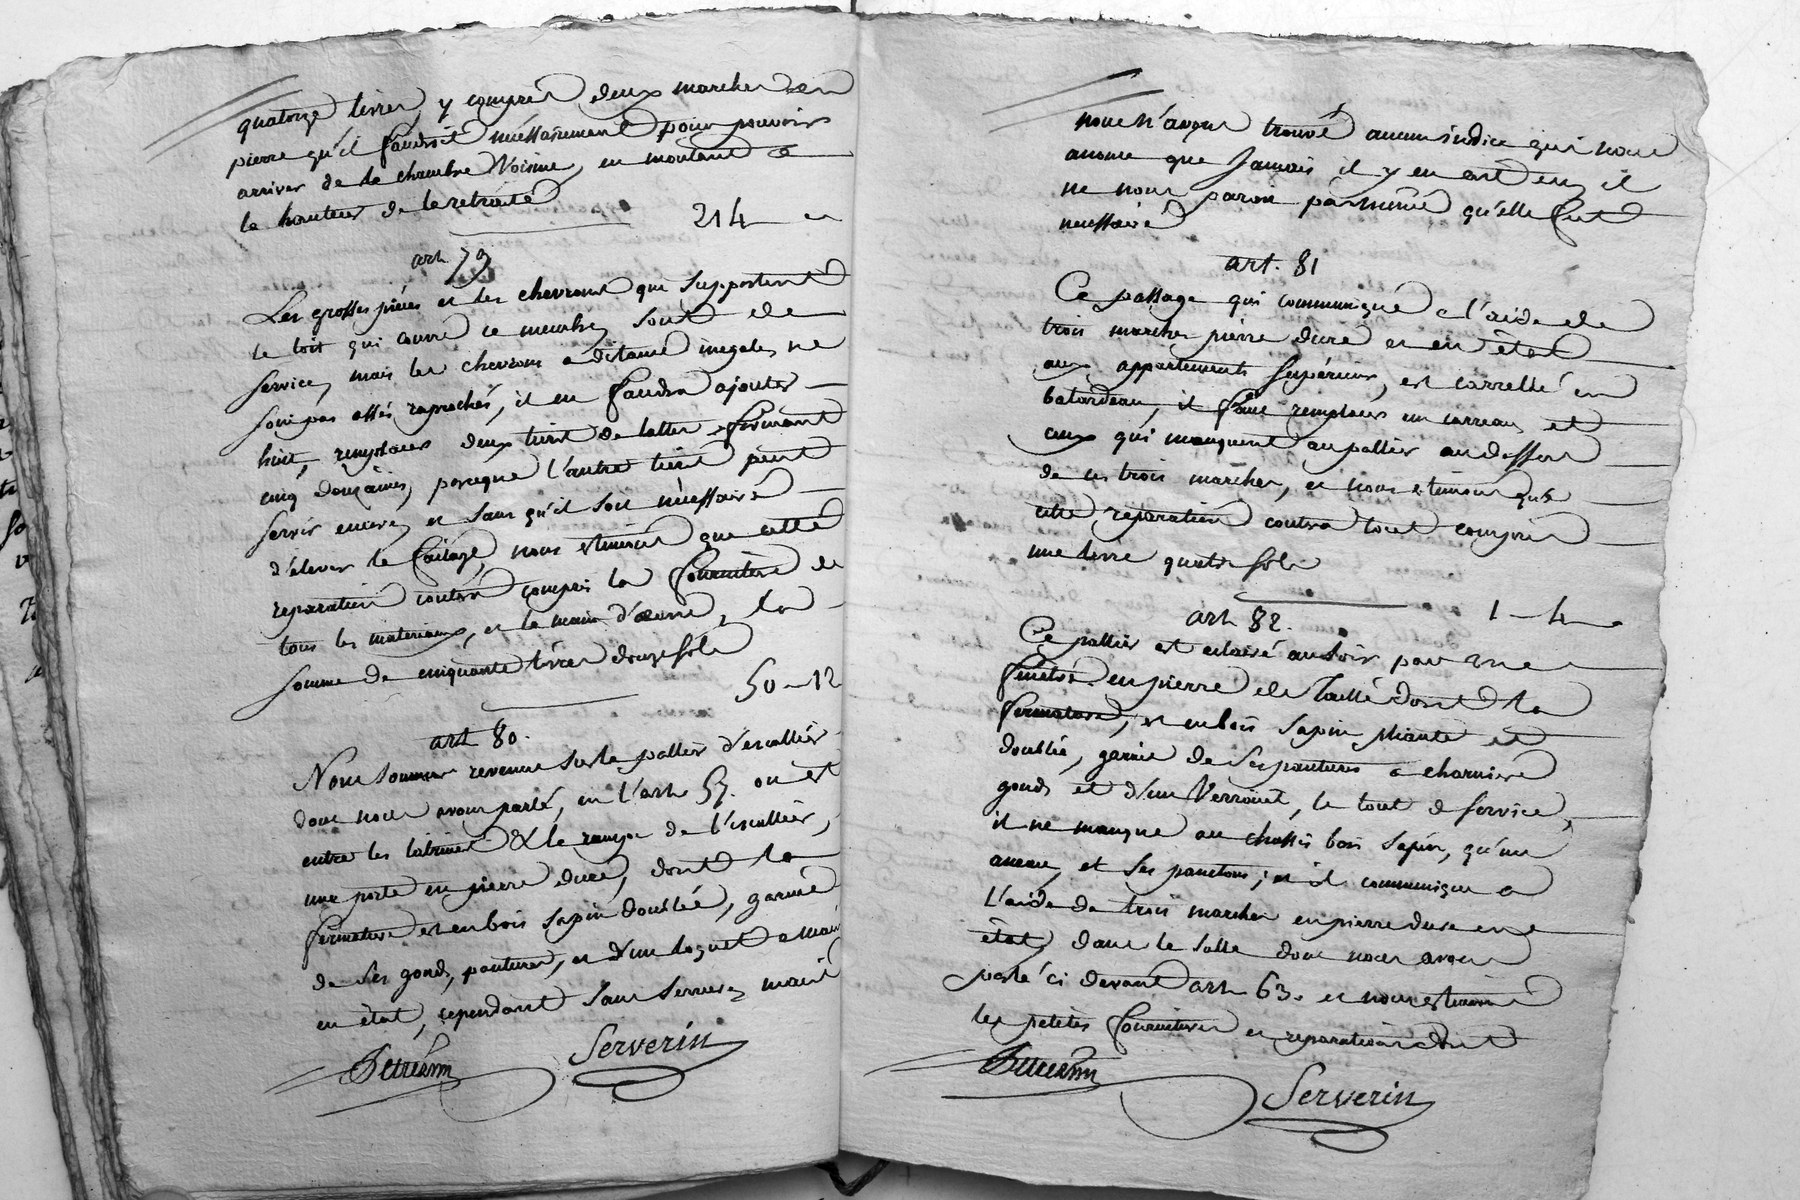 quatorze livres, y compris deux marches en
pierre qu'il faudroit nécéssairement pour pouvoir
arriver de la chambre Voisine, en montant a
la hauteur de la retraite
214 — "
art. 79
Les grosses piéces et les chevrons qui supportent
le toit qui couvre ce membre, sont de
service, mais les chevrons a distance inegales, ne
sont pas assés raprochés, il en faudra ajouter
huit, remplacer deux tiers de lattes formant
cinq douzaines, parceque l'autre tiers peut
servir encore, et sans qu'il soit nécessaire
d'élever le faitage, nous estimons que cette
reparation coutera compris la fourniture de
tous les materiaux, et la main d'œuvre, la
somme de cinquante livres douze sols
50 - 12
art. 80.
Nous sommes revenus sur le pallier d'escallier
dont nous avons parlé, en l'art. 57. ou est
entre les latrines & la rampe de l'escallier,
une porte en pierre dure, dont la
fermeture est en bois sapin doublée, garnie
de ses gonds, pantures, et d'un loquet a main
en état, cependant sans serrure, mais
Serverin
nous n'avons trouvé aucun indice qui nous
anonce que jamais il y en ait eu, il
ne nous paroit pas même qu'elle fut
necessaire
art. 81
Ce passage qui communique a l'aide de
trois marches pierre dure et en état
aux appartements supérieurs, est carrellé en
batardeau, il faut remplacer un carreau, et
ceux qui manquent au pallier au dessous
de ces trois marches, et nous estimons que
cette reparation coutera tout compris
une livre quatre sols
1 — 4 —
art. 82.
Ce pallier est eclairé au soir par une
fenêtre en pierre de Taille dont la
fermeture, est en bois sapin pliante et
doublée, garnie de ses pantures a charniere
gonds et d'un Verrouët, le tout de service,
il ne manque au chassis bois sapin, qu'un
aneau, et ses panetons; et il communique a
L'aide de trois marches en pierre dure en
état, dans la salle dont nous avons
parlé ci devant art. 63. et nous estimons
les petites fournitures et reparations dont
Serverin